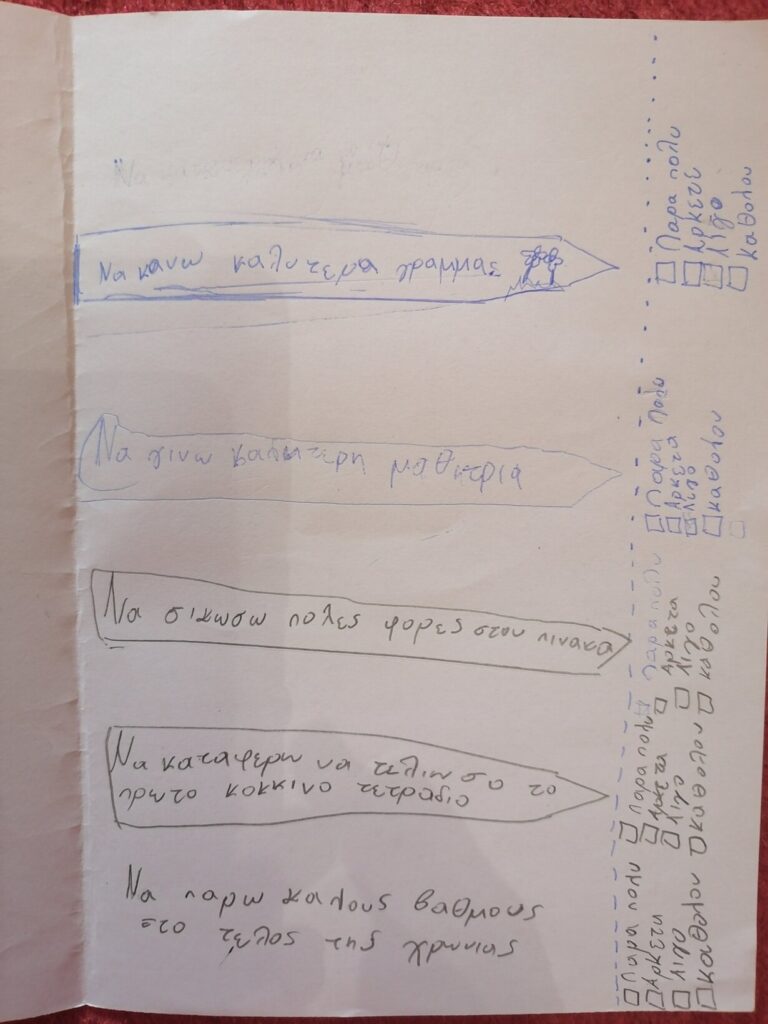 Να κανω καλητερα γραμματα
Παρα πολυ
Αρκετε
Λιγο
Καθολου
Να γινω καλητερη μαθητρια
Παρα πολυ
Αρκετα
Λιγο
καθολου
Να σικωσω πολες φορες στον πινακα
Παρα πολυ
Αρκετα
Λιγο
καθολου
Να καταφερω να τελιησσ ο το
πρητο κοκκινο τετραδιο
Παρα πολυ
Αρκετα
Λιγο
καθολου
Να παρω καλους βαθμους
στο τελος της χρονιας
Παρα πολυ
Αρκετα
Λιγο
καθολου